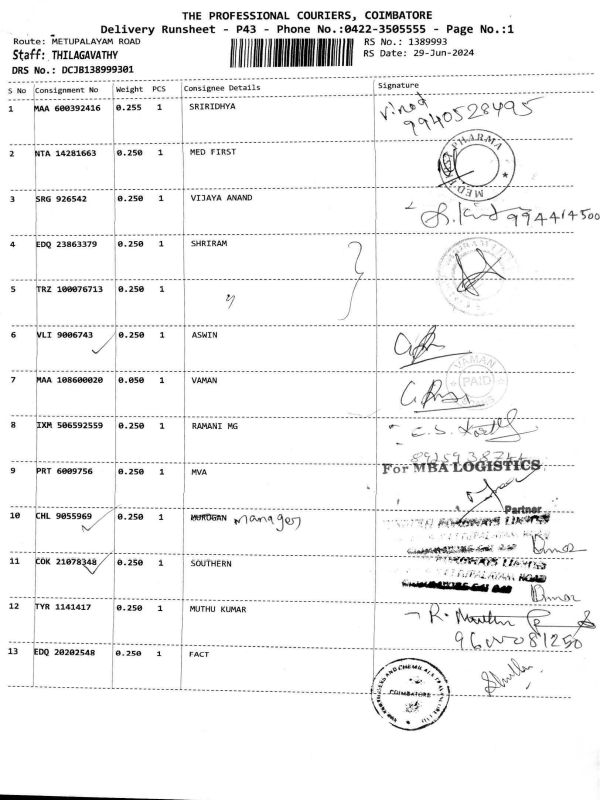 THE PROFESSIONAL COURIERS, COIMBATORE
Delivery Runsheet - P43 - Phone No.:0422-3505555 - Page No.:1
Route: METUPALAYAM ROAD RS No.: 1389993
Staff: THILAGAVATHY RS Date: 29-Jun-2024
DRS No.: DCJB138999301
S No Consignment No Weight PCS Consignee Details Signature
1 MAA 600392416 0.255 1 SRIRIDHYA Vinod
9940528495
2 NTA 14281663 0.250 1 MED FIRST
PHARMA
3 SRG 926542 0.250 1 VIJAYA ANAND
994414500
4 EDQ 23863379 0.250 1 SHRIRAM
5 TRZ 100076713 0.250 1 "
6 VLI 9006743 0.250 1 ASWIN
7 MAA 108600020 0.050 1 VAMAN
VAMAN
PAID
8 IXM 506592559 0.250 1 RAMANI MG
9 PRT 6009756 0.250 1 MVA For MBA LOGISTICS
Partner
10 CHL 9055969 0.250 1 MUROGAN Manager
11 COK 21078348 0.250 1 SOUTHERN
ROAD
12 TYR 1141417 0.250 1 MUTHU KUMAR
13 EDQ 20202548 0.250 1 FACT
COIMBATORE